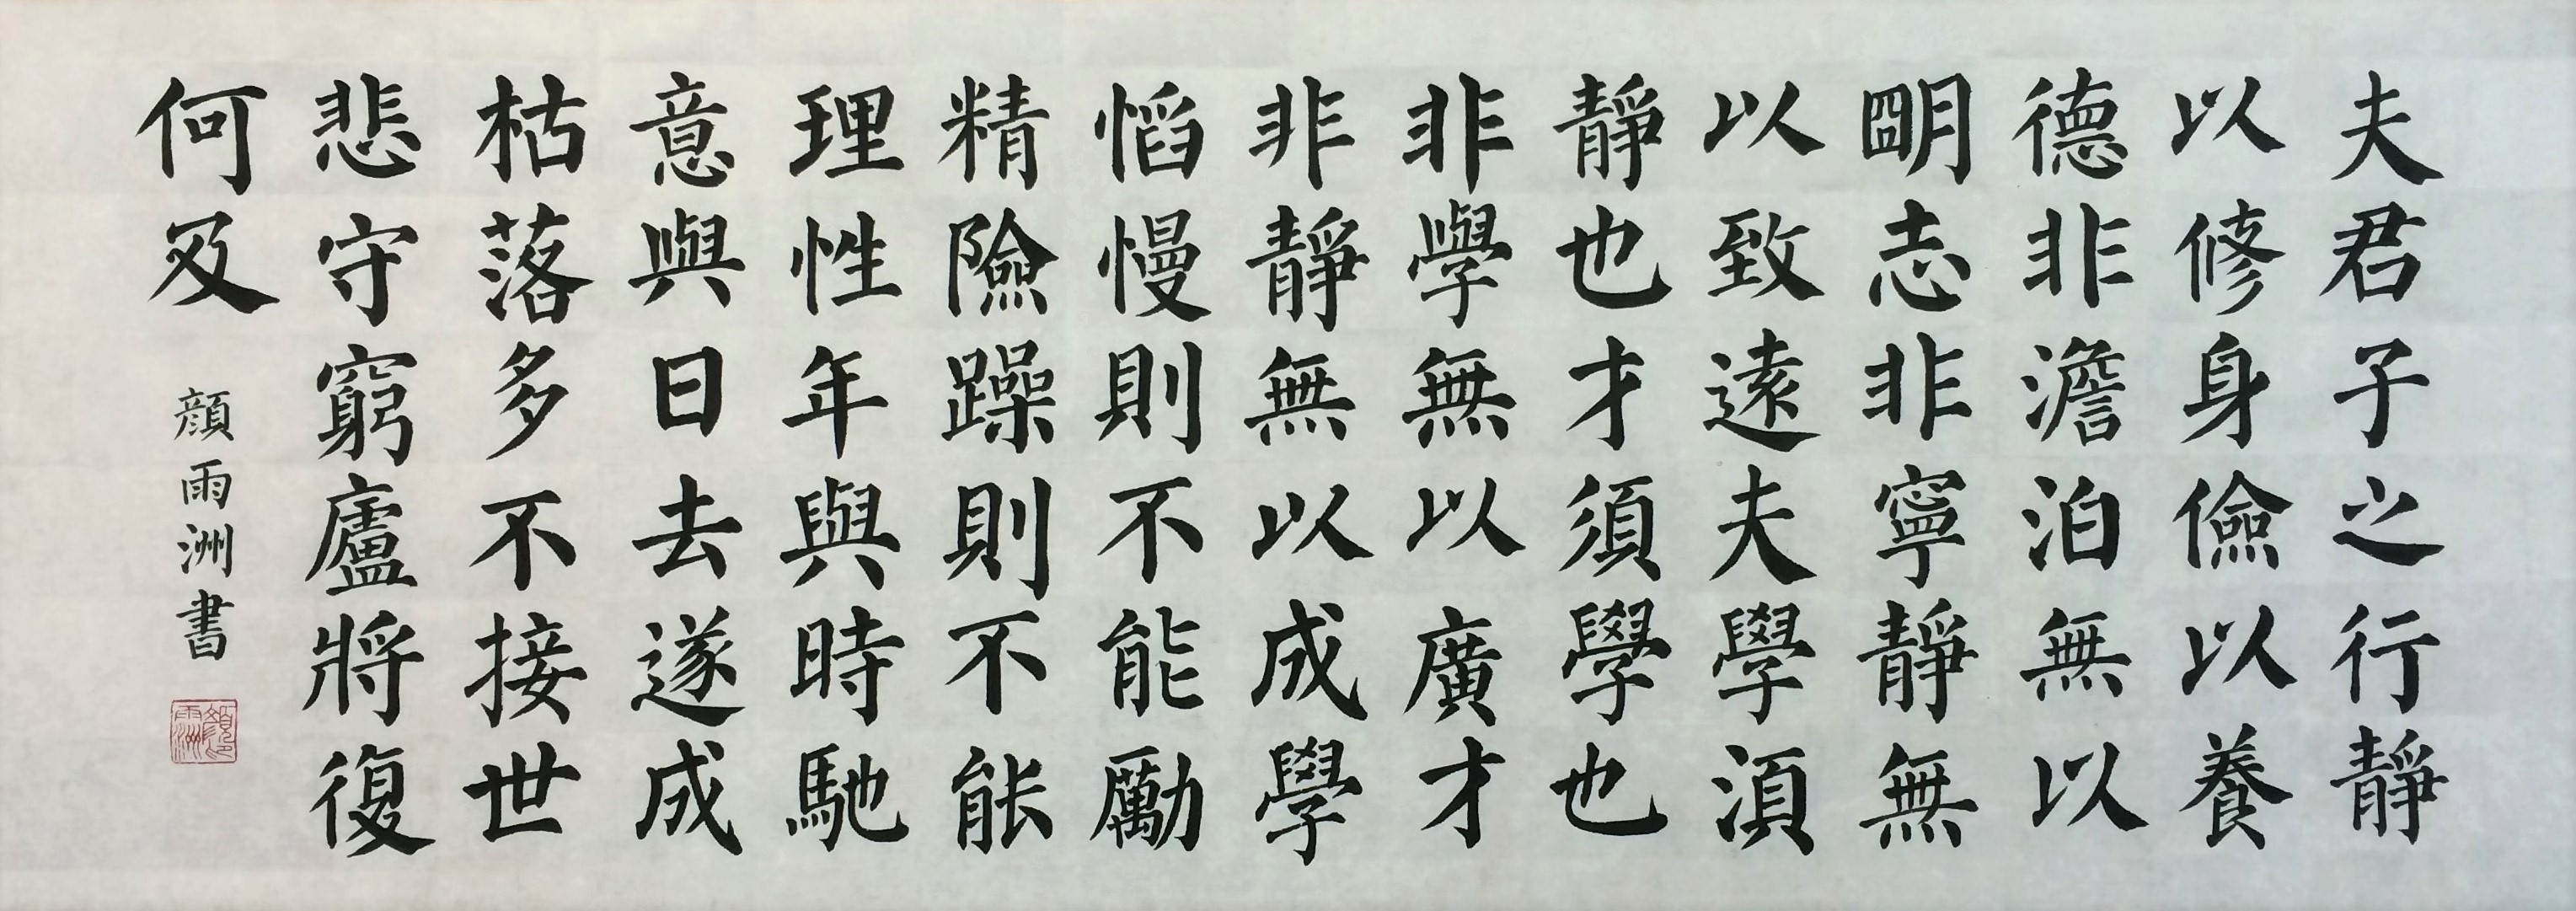 夫君子之行靜
以修身儉以養
德非澹泊無以
朙志非寧靜無
以致遠夫學湏
靜也才須學也
非學無以廣才
非靜無以成學
慆慢則不能勵
精險躁則不能
理性年與時馳
意與日去遂成
枯落多不接世
悲守窮廬將復
何及
顏雨洲書
顏印雨洲